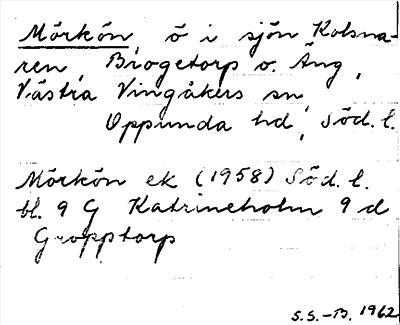 Mörkön, ö i sjön Kolsna-
ren, Biogetorp o. Äng,
Västra Vingåkers sn,
Oppunda hd, Söd. l.
Mörkön ek (1958) Söd. l.
bl. 9 G Katrineholm 9 d
Gropptorp
S.S.-B. 1962